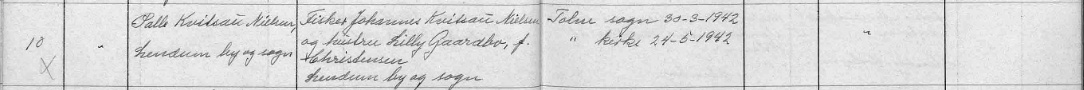 10 " Palle Kvitsau Nielsen, Fisker Johannes Kvitsau Nielsen Tolne sogn 30-3-1942 "
Lendum by og sogn og hustru Lilly Gaardbo, f. " kirke 24-5-1942
X Christensen
Lendum by og sogn